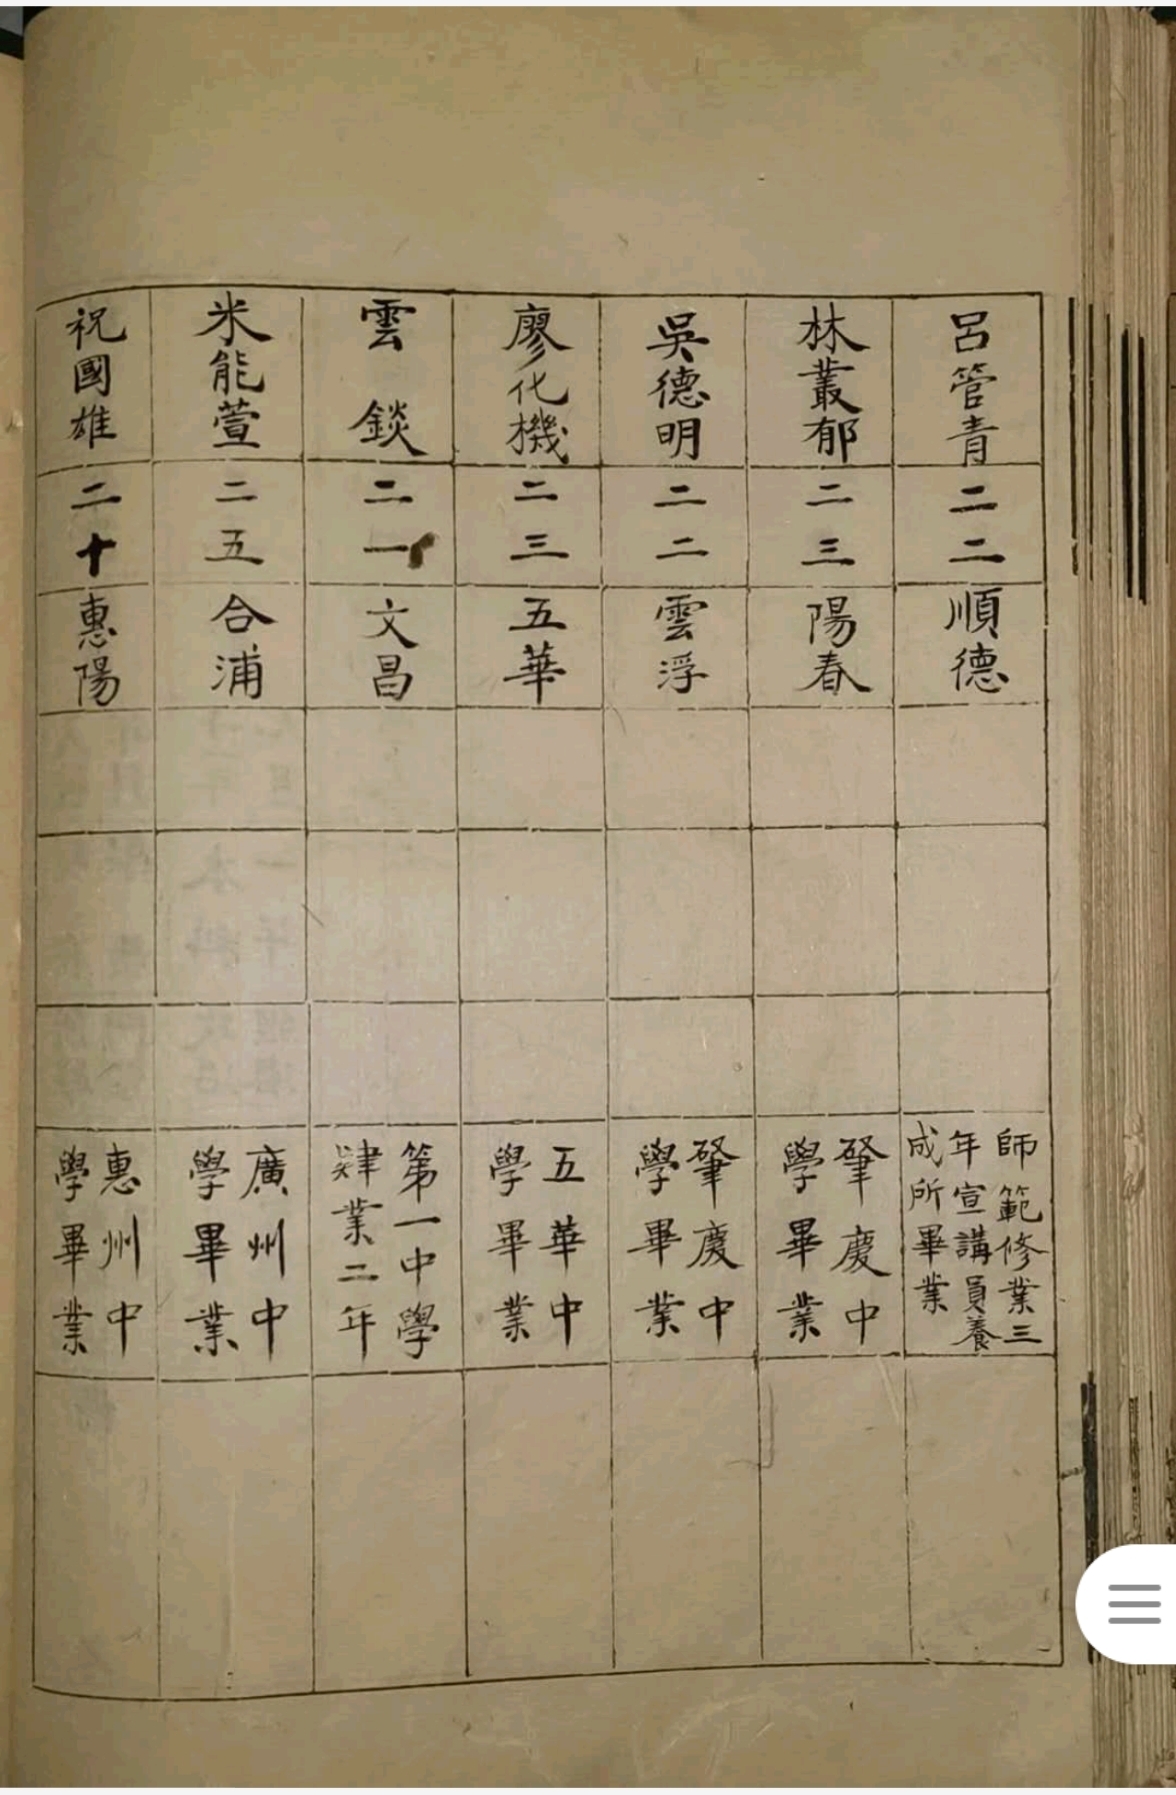 呂管青
二二
順德
師範修業三
年宣講員養
成所畢業
林叢郁
二三
陽春
肇慶中
學畢業
吳德明
二二
雲浮
肇慶中
學畢業
廖化機
二三
五華
五華中
學畢業
雲錟
二一
文昌
第一中學
肄業二年
米能萱
二五
合浦
廣州中
學畢業
祝國雄
二十
惠陽
惠州中
學畢業